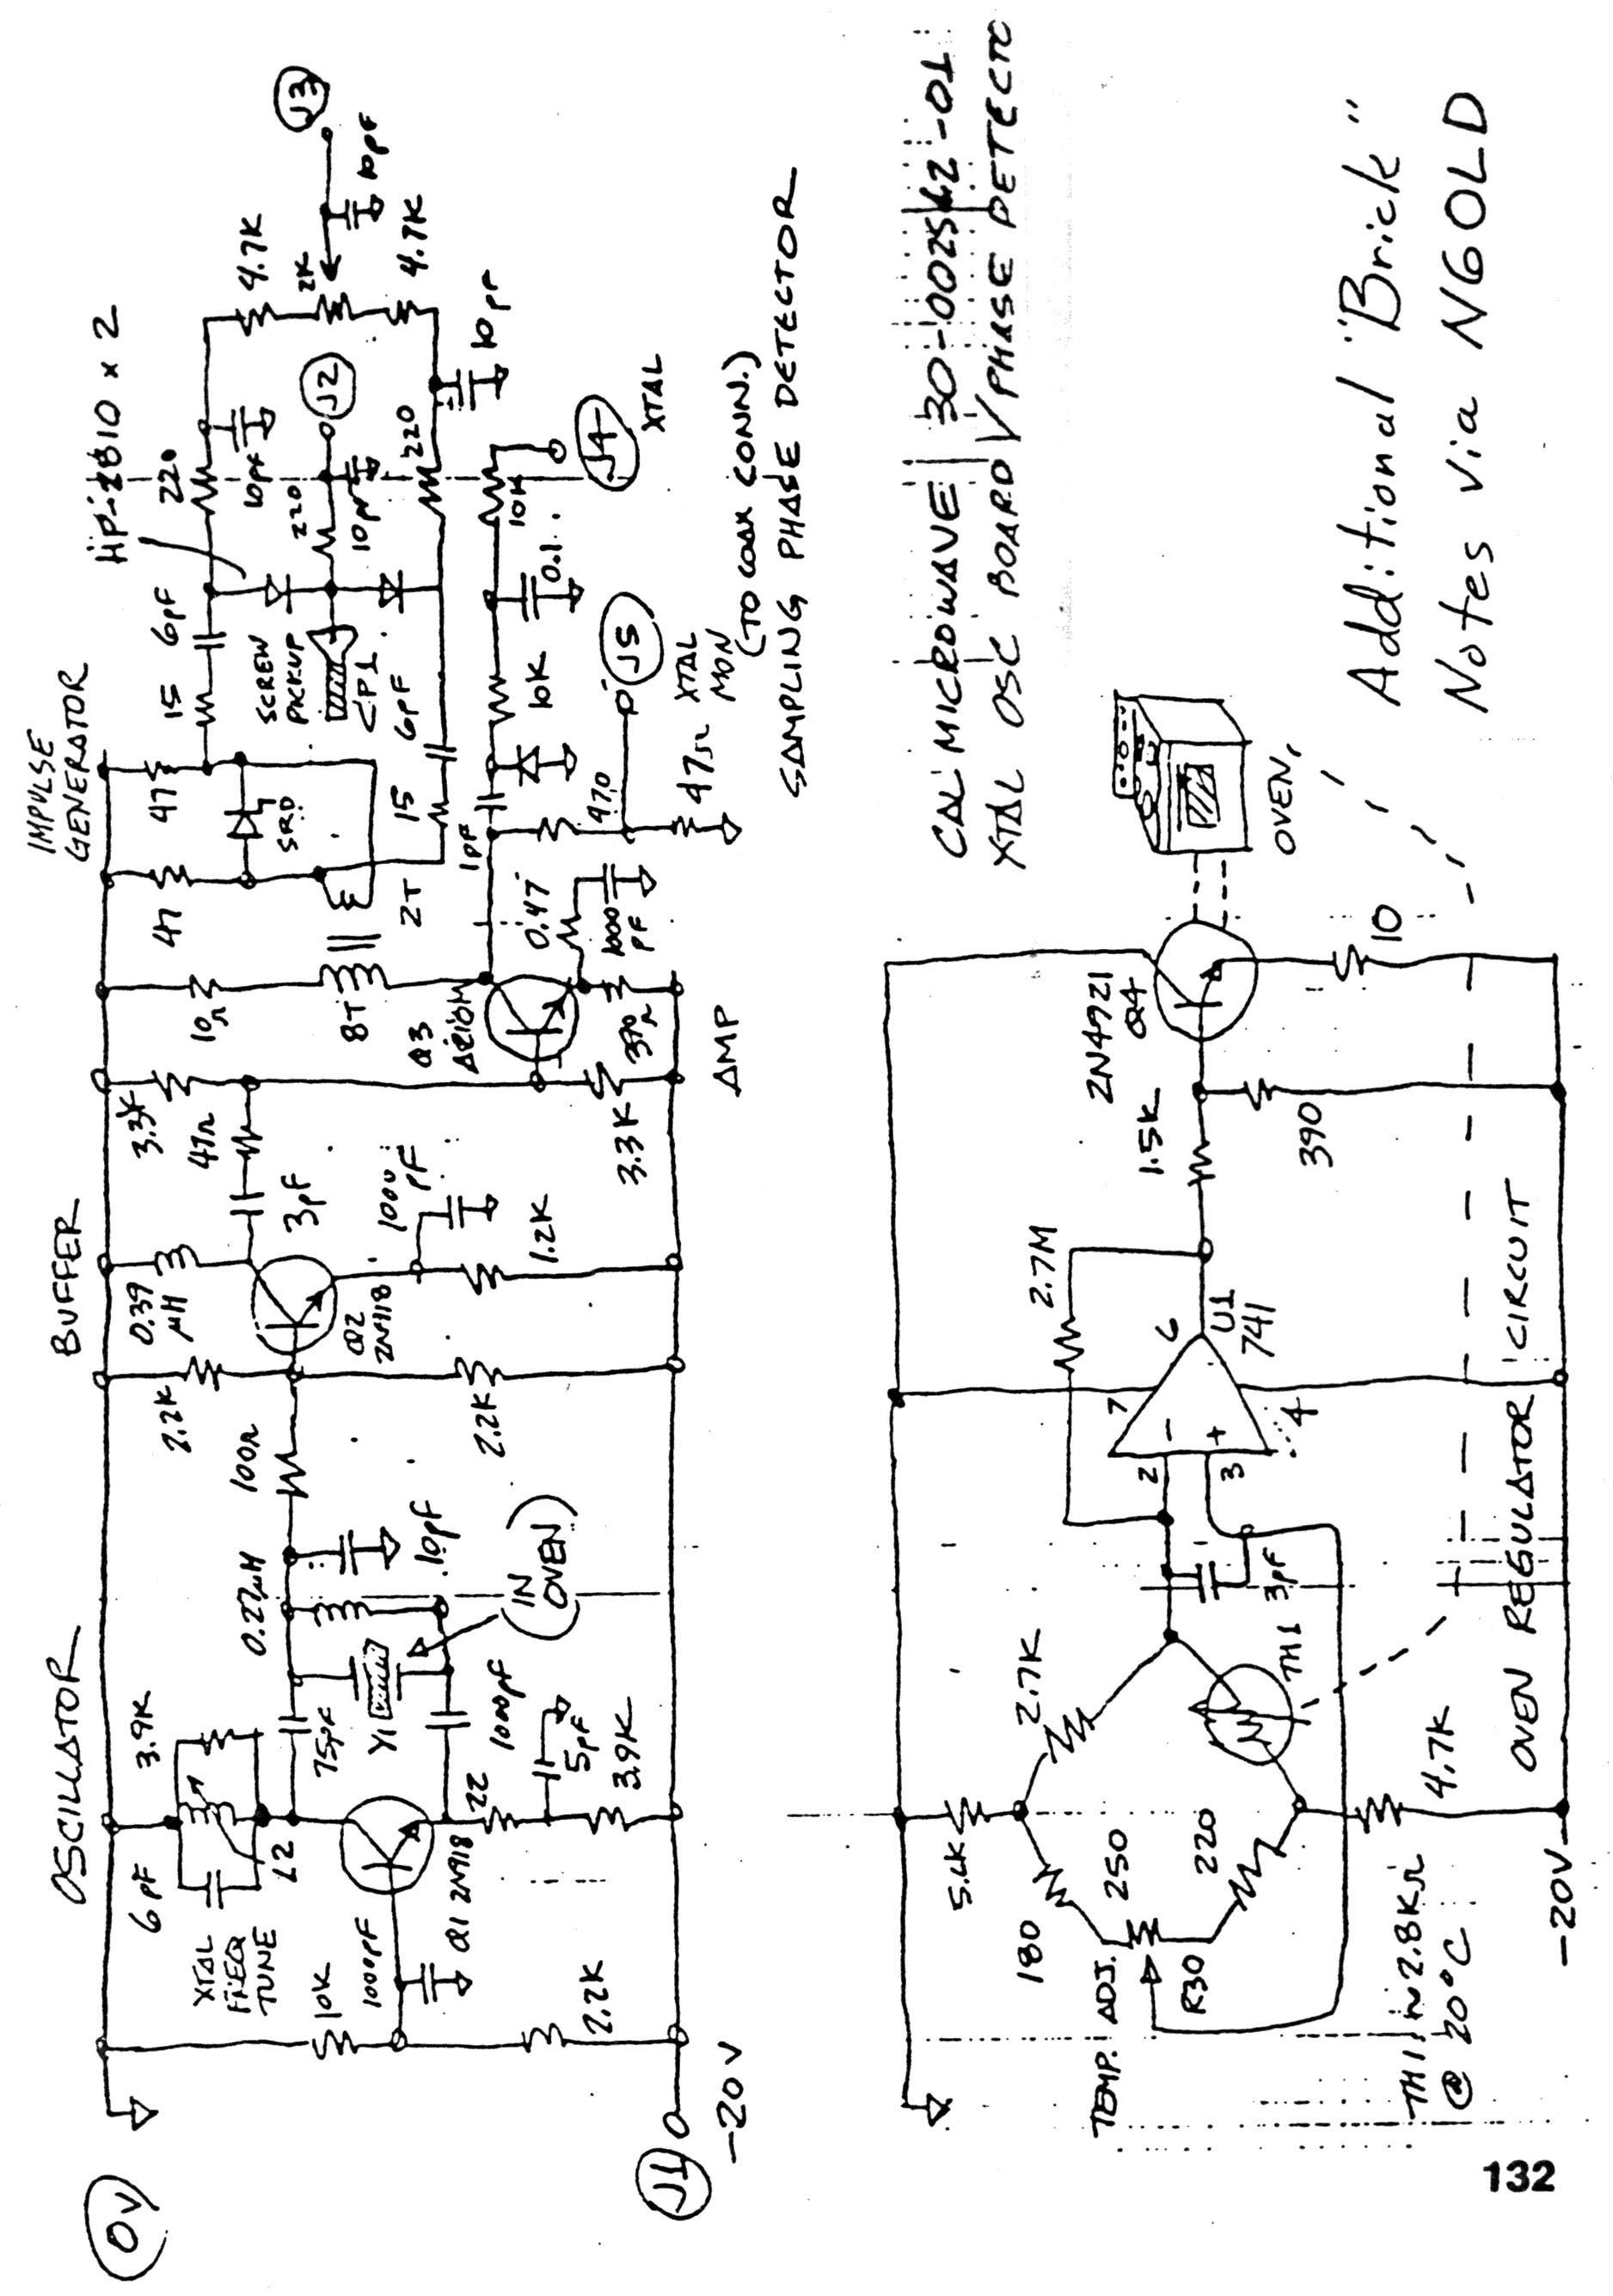 OSCILLATOR
BUFFER
IMPULSE
GENERATOR
HP-2810 x 2
0V
6pF
3.9K
XTAL
FREQ
TUNE
L2
10K
100pF
Q1 2N918
2.2K
75pF
Y1
0.27µH
100pF
22
5pF
3.9K
10pF
(IN
OVEN)
100Ω
2.2K
2.2K
0.39
µH
Q2
2N918
3pF
1000
pF
1.2K
47Ω
3.3K
3.3K
10Ω
8T
2T
Q3
390Ω
AMP
0.47
1000
pF
47
47
SRD
15
6pF
15
6pF
SCREW
PICKUP
CP1
220
10pF
220
10pF
J2
220
4.7K
2K
4.7K
10pF
J3
10pF
1pF
470
47Ω
10K
0.1
10K
J4
XTAL
J5
XTAL
MON
(TO COAX CONN.)
SAMPLING PHASE DETECTOR
J1
-20V
CAL MICROWAVE 30-002542-01
XTAL OSC BOARD / PHASE DETECTO
5.6K
180
2.7K
250
TEMP. ADJ.
R30
220
TH1
4.7K
TH1 ~ 2.8KΩ
@ 20°C
3pF
2
3
-
+
7
4
6
U1
741
2.7M
1.5K
390
2N4921
Q4
10
OVEN
OVEN REGULATOR CIRCUIT
-20V
Additional "Brick"
Notes via N6OLD
132